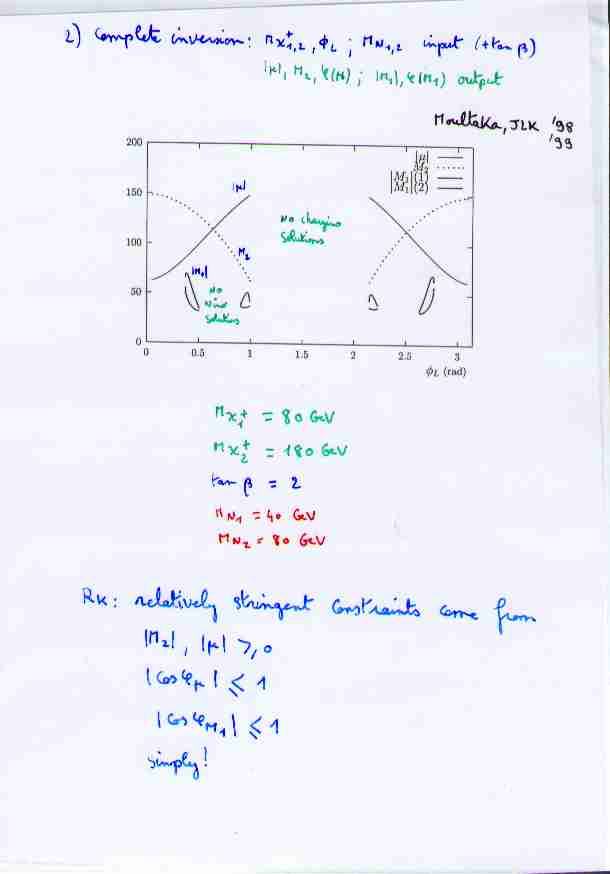 2) Complete inversion: Mχ⁺₁,₂, ϕL ; MN₁,₂ input (+tan β)
|μ|, M₂, φ(μ) ; |M₁|, φ(M₁) output
Moultaka, JLK '98
'99
200
150
100
50
0
|μ|
M₂
|M₁|(1)
|M₁|(2)
|μ|
M₂
|M₁|
No chargino
solutions
No
Nino
solutions
0 0.5 1 1.5 2 2.5 3
ϕL (rad)
Mχ⁺₁ = 80 GeV
Mχ⁺₂ = 180 GeV
tan β = 2
MN₁ = 40 GeV
MN₂ = 80 GeV
Rk: relatively stringent constraints come from
|M₂|, |μ| ⩾ 0
|cos φμ| ⩽ 1
|cos φM₁| ⩽ 1
simply!